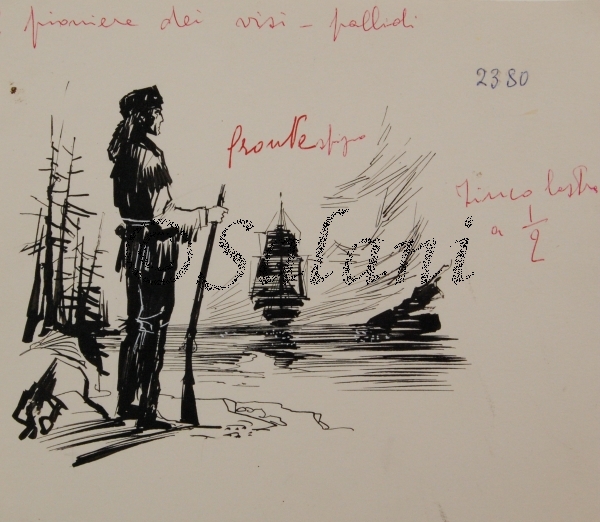 pioniere dei visi - pallidi
2380
frontespizio
Zinco lastra
a 1/2
©Salani